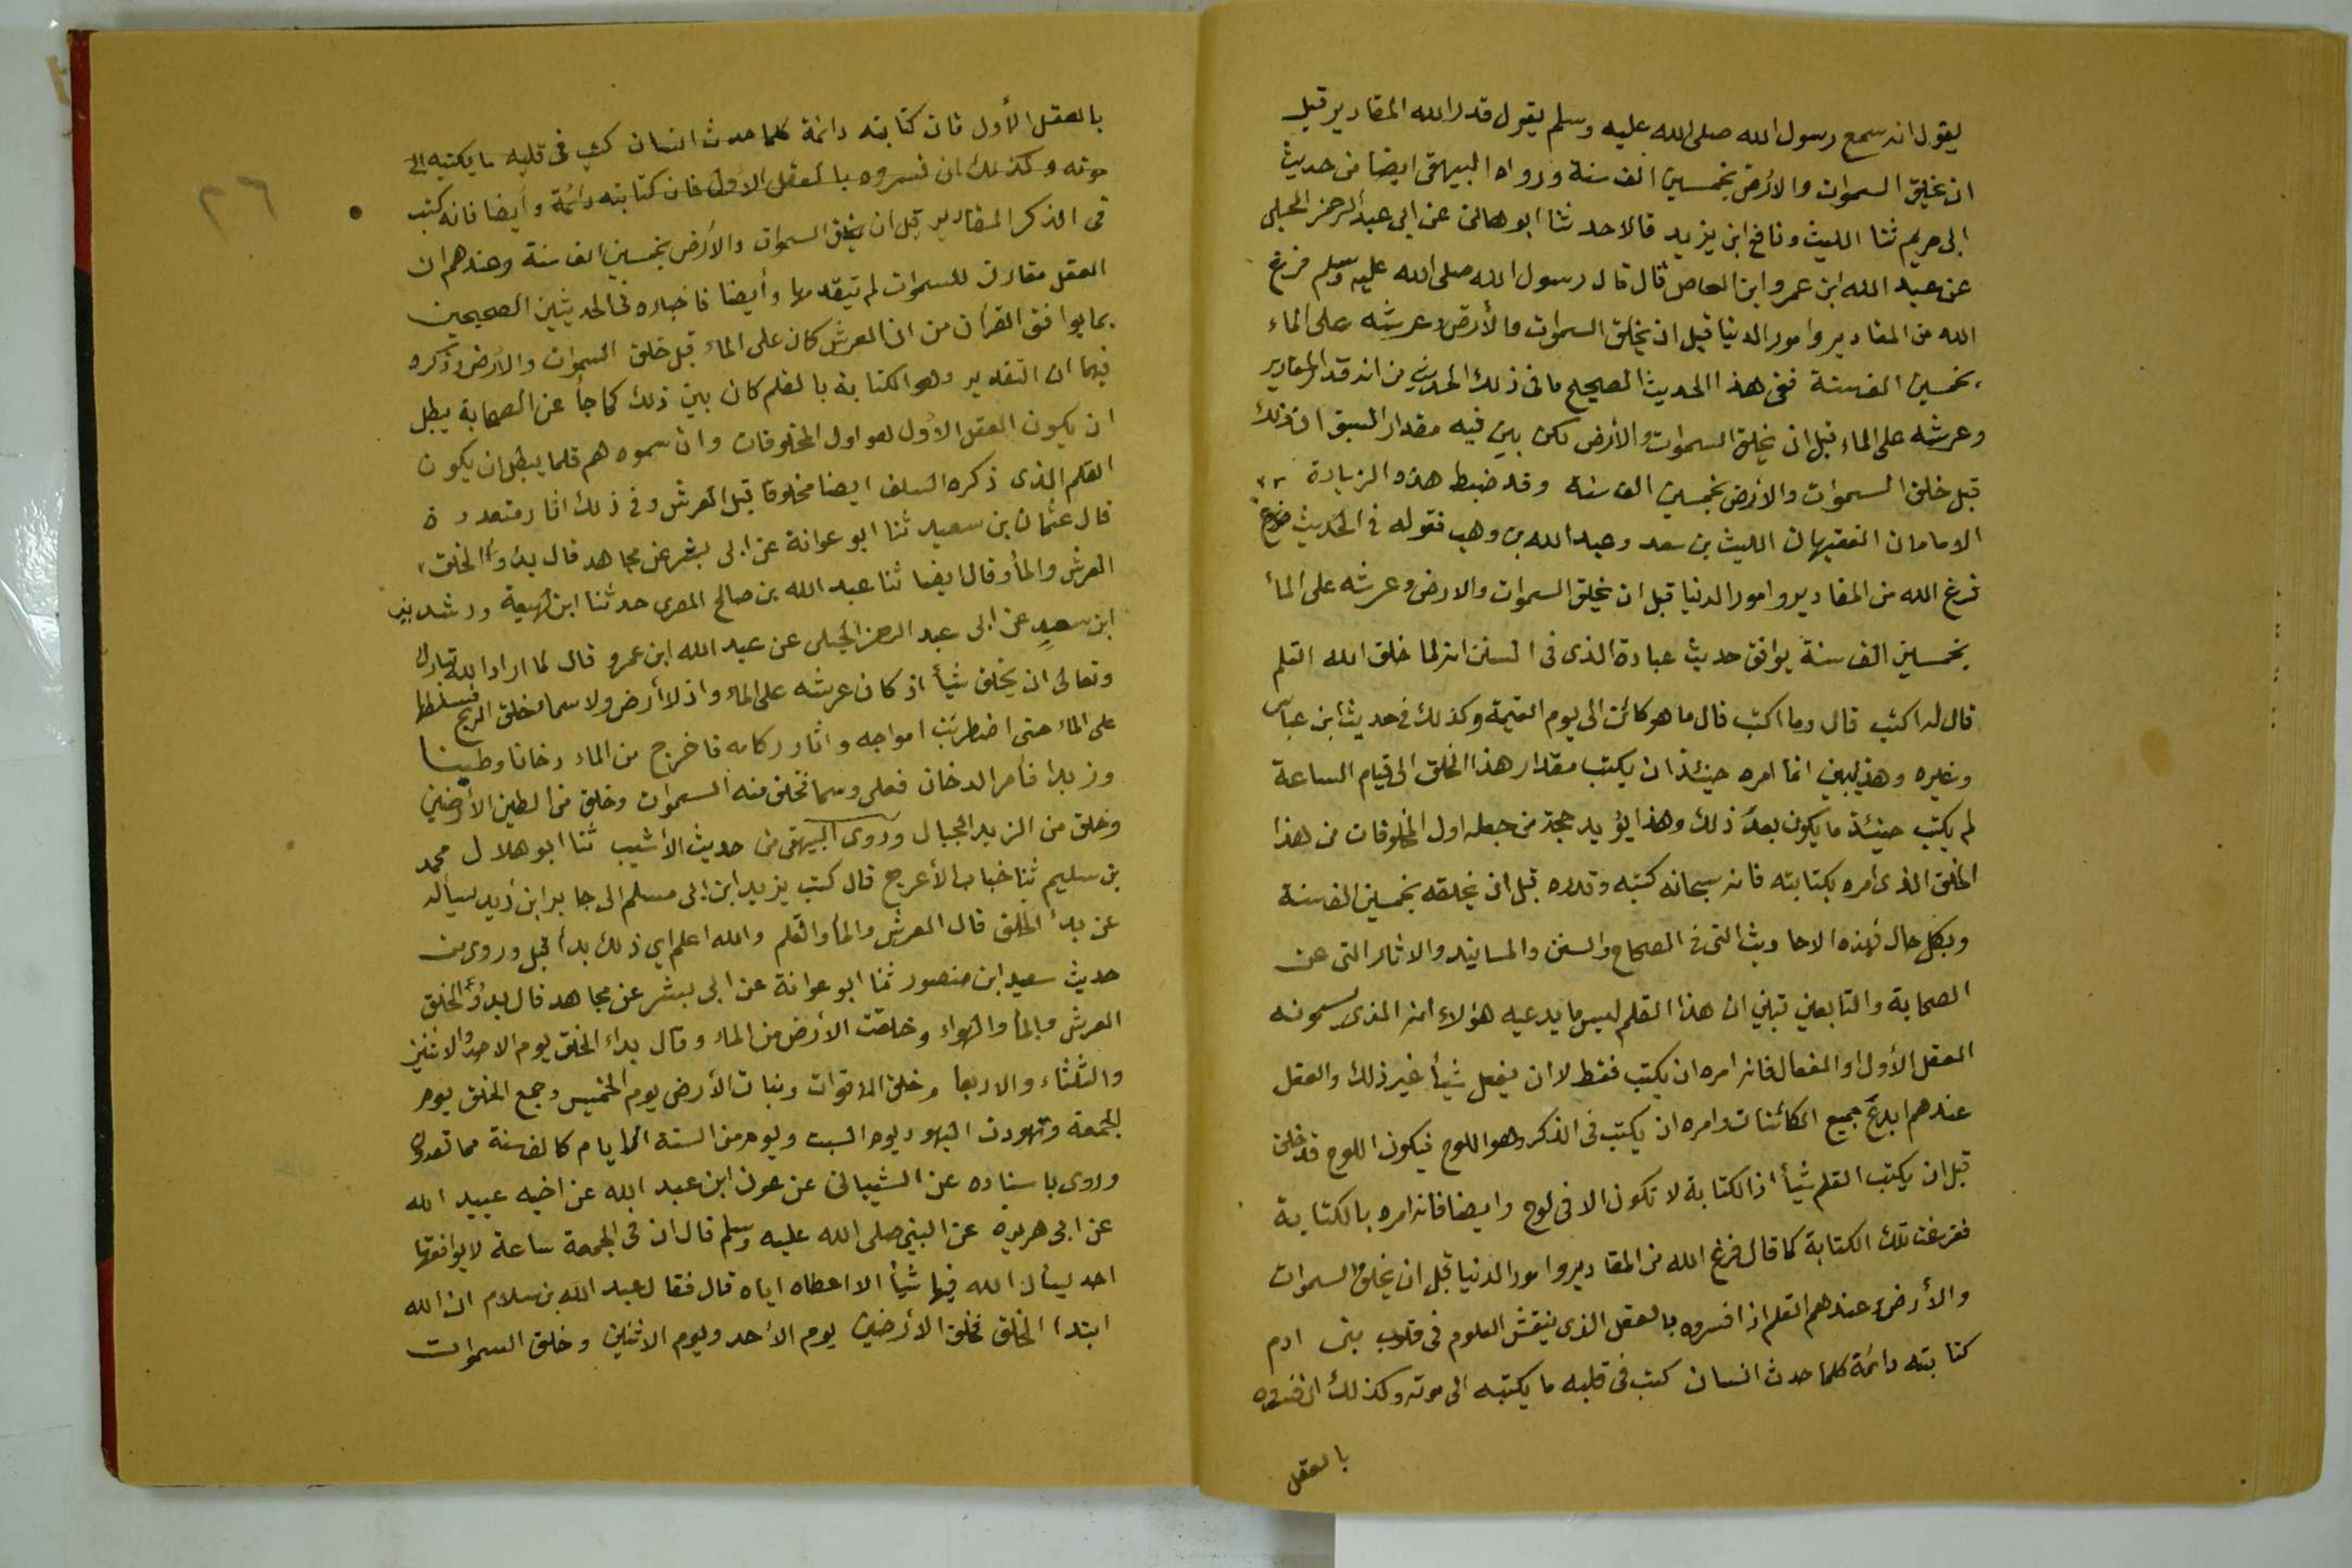 يقول انه سمع رسول الله صلى الله عليه وسلم يقول قدر الله المقادير قبل
ان يخلق السموات والأرض بخمسين الف سنة ورواه البيهقى ايضا من حديث
ابى مريم ثنا الليث ونافع ابن يزيد قالا حدثنا ابو هانئ عن ابى عبد الرحمن الحبلى
عن عبد الله ابن عمرو ابن العاص قال قال رسول الله صلى الله عليه وسلم فرغ
الله من المقادير وامور الدنيا قبل ان يخلق السموات والأرض وعرشه على الماء
بخمسين الف سنة ففى هذا الحديث الصحيح ما فى ذلك الحديث من انه قدر المقادير
وعرشه على الماء قبل ان يخلق السموات والأرض لكن بين فيه مقدار السبق ان ذلك
قبل خلق السموات والأرض بخمسين الف سنة وقد ضبط هذه الزيادة
الامامان الفقيهان الليث بن سعد وعبد الله بن وهب فقوله فى الحديث
فرغ الله من المقادير وامور الدنيا قبل ان يخلق السموات والارض وعرشه على الماء
بخمسين الف سنة يوافق حديث عبادة الذى فى السنن انه لما خلق الله القلم
قال له اكتب قال وما اكتب قال ما هو كائن الى يوم القيمة وكذلك فى حديث ابن عباس
وغيره وهذا يبين انما امره حينئذ ان يكتب مقدار هذا الخلق الى قيام الساعة
لم يكتب حينئذ ما يكون بعد ذلك وهذا يؤيد حجة من جعله اول المخلوقات من هذا
الخلق الذى امره بكتابته فانه سبحانه كتبه وقدره قبل ان يخلقه بخمسين الف سنة
وبكل حال فهذه الاحاديث التى فى الصحاح والسنن والمسانيد والاثار التى عن
الصحابة والتابعين تبين ان هذا القلم ليس ما يدعيه هؤلاء انه الذى يسمونه
العقل الأول او الفعال فانه امره ان يكتب فقط لا ان يفعل شيأ غير ذلك والعقل
عندهم ابدع جميع الكائنات وامره ان يكتب فى الذكر وهو اللوح فيكون اللوح قد خلق
قبل ان يكتب القلم شيأ اذ الكتابة لا تكون الا فى لوح وايضا فانه امره بالكتابة
ففرغت تلك الكتابة كما قال فرغ الله من المقادير وامور الدنيا قبل ان يخلق السموات
والأرض وعندهم القلم اذا فسروه بالعقل الذى ينقش العلوم فى قلوب بنى ادم
كتابته دائمة كلما حدث انسان كتب فى قلبه ما يكتبه الى موته وكذلك ان فسروه
بالعقل
٢٦
بالعقل الأول فان كتابته دائمة كلما حدث انسان كتب فى قلبه ما يكتبه الى
موته وكذلك ان فسروه بالعقل الأول فان كتابته دائمة وأيضا فانه كتب
فى الذكر المقادير قبل ان يخلق السموات والأرض بخمسين الف سنة وعندهم ان
العقل مقارن للسموات لم يتقدمها وأيضا فاخباره فى الحديثين الصحيحين
بما يوافق القرآن من ان العرش كان على الماء قبل خلق السموات والأرض وذكره
فيهما ان التقدير وهو الكتابة بالقلم كان بين ذلك كما جأ عن الصحابة يبطل
ان يكون العقل الأول هو اول المخلوقات وان سموه هم قلما يبطل ان يكون
القلم الذى ذكره السلف ايضا مخلوقا قبل العرش وفى ذلك اثار متعددة
قال عثمان بن سعيد ثنا ابو عوانة عن ابى بشر عن مجاهد قال بدؤ الخلق
العرش والمأ وقال ايضا ثنا عبد الله بن صالح المصرى حدثنا ابن لهيعة ورشدين
ابن سعد عن ابى عبد الرحمن الحبلى عن عبد الله ابن عمرو قال لما اراد الله تبارك
وتعالى ان يخلق شيأ اذ كان عرشه على الماء واذ لا أرض ولا سماء خلق الريح فسلطها
على الماء حتى اضطربت امواجه واثار ركامه فاخرج من الماء دخانا وطينا
وزبدا فأمر الدخان فعلى وسما فخلق منه السموات وخلق من الطين الأرضين
وخلق من الزبد الجبال وروى البيهقى من حديث الأشيب ثنا ابو هلال محمد
بن سليم ثنا خباب الأعرج قال كتب يزيد ابن ابى مسلم الى جابر ابن زيد يسأله
عن بدأ الخلق قال العرش والمأ والقلم والله اعلم اي ذلك بدأ قبل وروى من
حديث سعيد ابن منصور ثنا ابو عوانة عن ابى بشر عن مجاهد قال بدؤ الخلق
العرش والمأ والهواء وخلقت الأرض من الماء وقال بداء الخلق يوم الاحد والاثنين
والثلثاء والاربعا وخلق الاقوات ونبات الأرض يوم الخميس وجمع الخلق يوم
الجمعة وتهودت اليهود يوم السبت ويوم من الستة الايام كالف سنة مما تعدون
وروى باسناده عن الشيبانى عن عون ابن عبد الله عن اخيه عبيد الله
عن ابى هريره عن النبى صلى الله عليه وسلم قال ان فى الجمعة ساعة لا يوافقها
احد يسأل الله فيها شيأ الا اعطاه اياه قال فقال عبد الله بن سلام ان الله
ابتدا الخلق فخلق الأرضين يوم الأحد ويوم الاثنين وخلق السموات